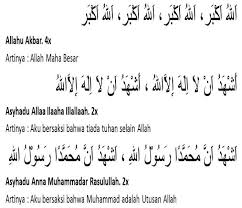 اَللهُ اَكْبَرُ، اَللهُ اَكْبَرُ، اَللهُ اَكْبَرُ، اَللهُ اَكْبَرُ
Allahu Akbar. 4x
Artinya : Allah Maha Besar
أَشْهَدُ اَنْ لاَ إِلٰهَ إِلاَّاللهُ ، أَشْهَدُ اَنْ لاَ إِلٰهَ إِلاَّاللهُ
Asyhadu Allaa Ilaaha Illallaah. 2x
Artinya : Aku bersaksi bahwa tiada tuhan selain Allah
اَشْهَدُ اَنَّ مُحَمَّدًا رَسُوْلُ اللهِ ، اَشْهَدُ اَنَّ مُحَمَّدًا رَسُوْلُ اللهِ
Asyhadu Anna Muhammadar Rasulullah. 2x
Artinya : Aku bersaksi bahwa Muhammad adalah Utusan Allah